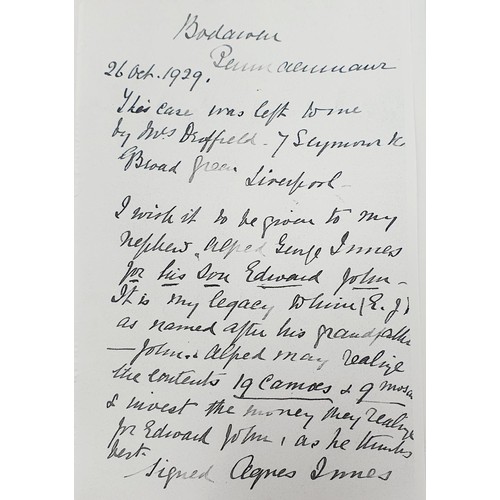 Bodawen
Penmaenmawr
26 Oct. 1929.
This case was left to me
by Mrs Driffield - 7 Seymour
Broad Green
Liverpool -
I wish it to be given to my
nephew Alfred George Innes
for his Son Edward John -
It is my legacy to him (E. J)
as named after his grandfather
- John. Alfred may realize
the contents 19 Cameos & 9 mosaic
& invest the money they realize
for Edward John, as he thinks
best.
Signed Agnes Innes